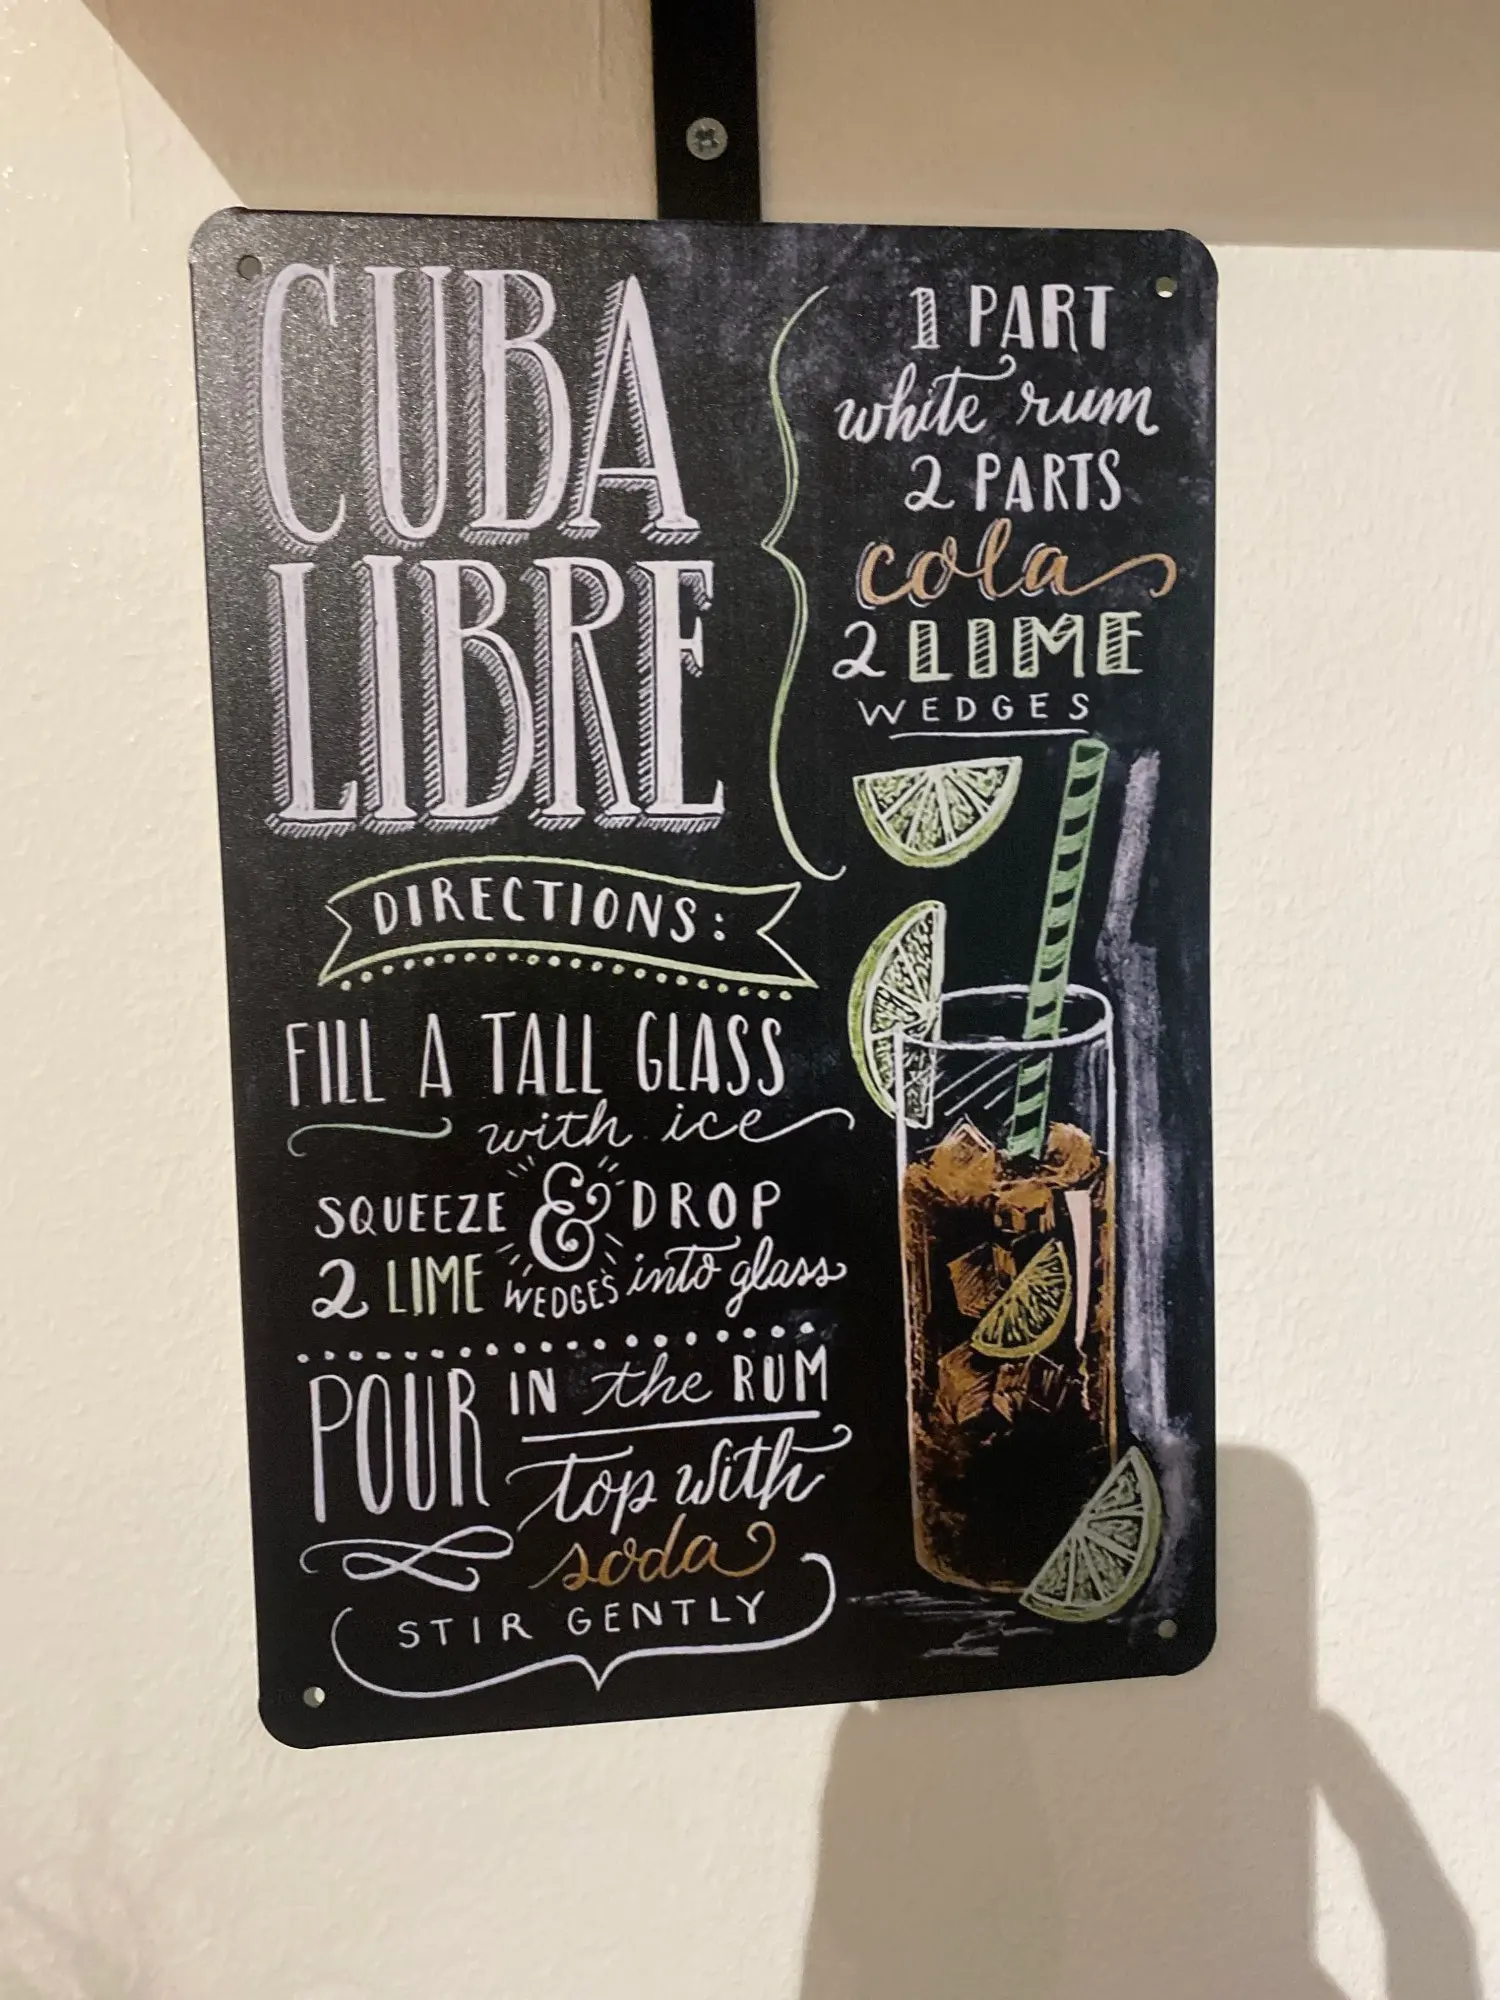 CUBA
LIBRE
1 PART
white rum
2 PARTS
cola
2 LIME
WEDGES
DIRECTIONS:
FILL A TALL GLASS
with ice
SQUEEZE & DROP
2 LIME WEDGES into glass
POUR IN the RUM
top with
soda
STIR GENTLY